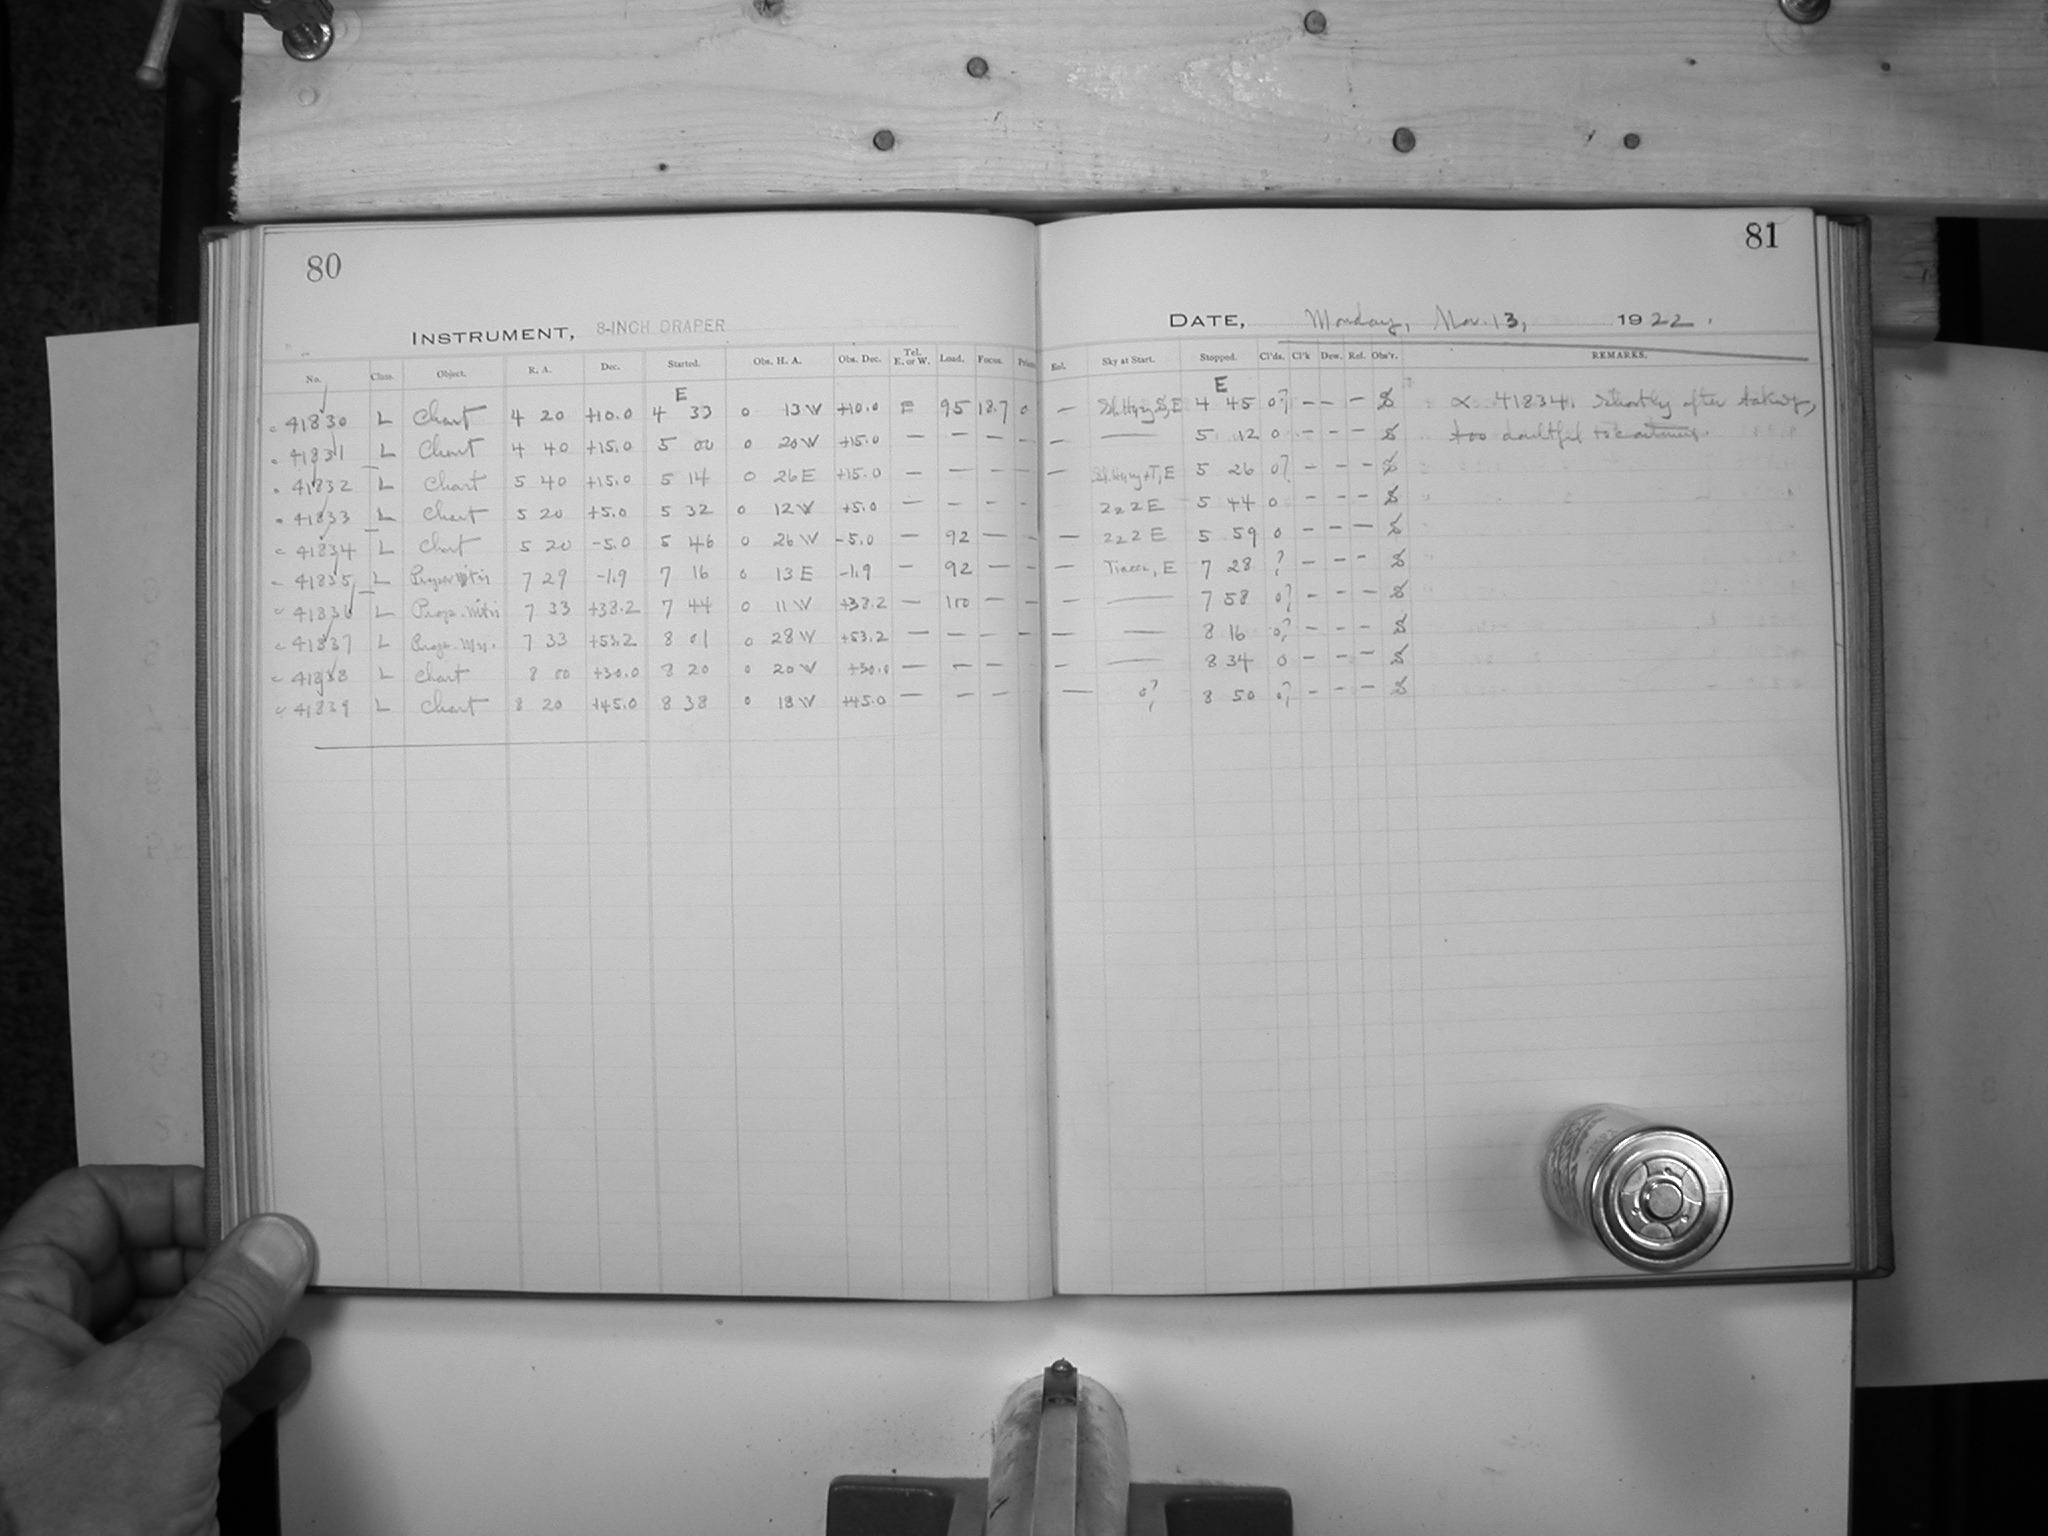 80
81
INSTRUMENT, 8-INCH DRAPER
DATE, Monday, Nov. 13, 1922.
No. Class. Object. R. A. Dec. Started. Obs. H. A. Obs. Dec. Tel. E. or W. Load. Focus. Prism Exl. Sky at Start. Stopped. Cl'ds. Cl'k Dew. Ref. Obs'r. REMARKS.
E E
41830 L Chart 4 20 +10.0 4 33 0 13 W +10.0 E 95 18.7 0 — E 4 45 0? — — — S ∝ 41834. Shortly after taking,
41831 L Chart 4 40 +15.0 5 00 0 20 W +15.0 — — — — — — 5 12 0 — — — S too doubtful to continue.
41832 L Chart 5 40 +15.0 5 14 0 26 E +15.0 — — — — — E 5 26 0? — — — S
41833 L Chart 5 20 +5.0 5 32 0 12 W +5.0 — — — — 222 E 5 44 0 — — — S
41834 L Chart 5 20 -5.0 5 46 0 26 W -5.0 — 92 — — — 222 E 5 59 0 — — — S
41835 L 7 29 -1.9 7 16 0 13 E -1.9 — 92 — — — Traces, E 7 28 ? — — — S
41836 L 7 33 +38.2 7 44 0 11 W +38.2 — 100 — — — — 7 58 0? — — — S
41837 L 7 33 +53.2 8 01 0 28 W +53.2 — — — — — — 8 16 0? — — — S
41838 L Chart 8 00 +30.0 8 20 0 20 W +30.0 — — — — — 8 34 0 — — — S
41839 L Chart 8 20 +45.0 8 38 0 18 W +45.0 — — — — 0? 8 50 0? — — — S